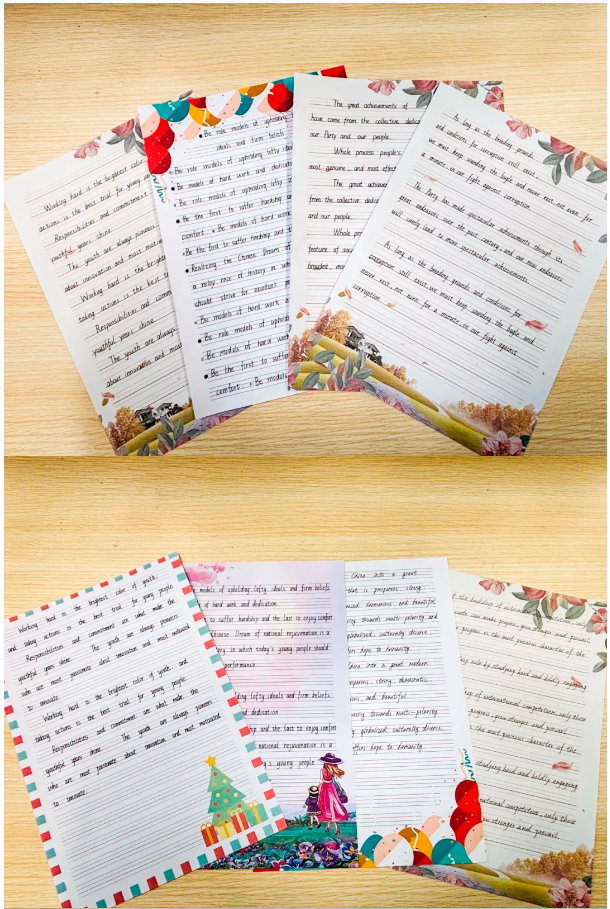 Working hard is the brightest
actions is the best trial for young
Responsibilities and commitment
youthful years shine.
The youth are always pioneers
about innovation and most
Working hard is the
taking actions is the best
Responsibilities and
youthful years shine.
The youth are always
about innovation and most
Be role models of upholding
ideals and firm beliefs
Be role models of upholding lofty
Be models of hard work and
Be role models of upholding lofty
Be the first to suffer hardship and
comfort. Be models of hard work
Be the first to suffer hardship and
Realizing the Chinese Dream of
a relay race of history in
should strive for excellent
Be models of hard work
Be role models of
Be models of hard work
Be the first to
comfort. Be models
The great achievements of
have come from the collective
our Party and our people.
Whole process people's
most genuine, and most
The great
from the collective
and our people.
Whole
feature of
broadest,
As long as the breeding grounds
and conditions for corruption still exist,
we must keep sounding the bugle and never rest, not even for
a minute, in our fight against corruption.
The Party has made spectacular achievements through its
great endeavors over the past century, and our new endeavors
will surely lead to more spectacular achievements.
As long as the breeding grounds and conditions for
corruption still exist, we must keep sounding the bugle and
never rest, not even for a minute, in our fight against
corruption.
Working hard is the brightest color of youth,
and taking actions is the best trial for young people.
Responsibilities and commitment are what make the
youthful years shine. The youth are always pioneers
who are most passionate about innovation and most motivated
to innovate.
Working hard is the brightest color of youth, and
taking actions is the best trial for young people.
Responsibilities and commitment are what make the
youthful years shine. The youth are always pioneers
who are most passionate about innovation and most motivated
to innovate.
models of upholding lofty ideals and firm beliefs
of hard work and dedication.
to suffer hardship and the last to enjoy comfort
Chinese Dream of national rejuvenation is a
in which today's young people should
performance
lofty ideals and firm beliefs.
and dedication.
and the last to enjoy comfort
national rejuvenation is a
young people
China into a great
that is prosperous, strong,
harmonious, and beautiful
towards multi-polarity and
globalized, culturally diverse,
hope to humanity
China into a great modern
prosperous, strong, democratic,
and beautiful.
towards multi-polarity
globalized, culturally diverse,
offers hope to humanity.
progress, grow stronger and prevail.
progress is the most precious character of the
by studying hard and boldly engaging
of international competition, only those
progress, grow stronger and prevail
the most precious character of the
studying hard and boldly engaging
international competition, only those
grow stronger and prevail.